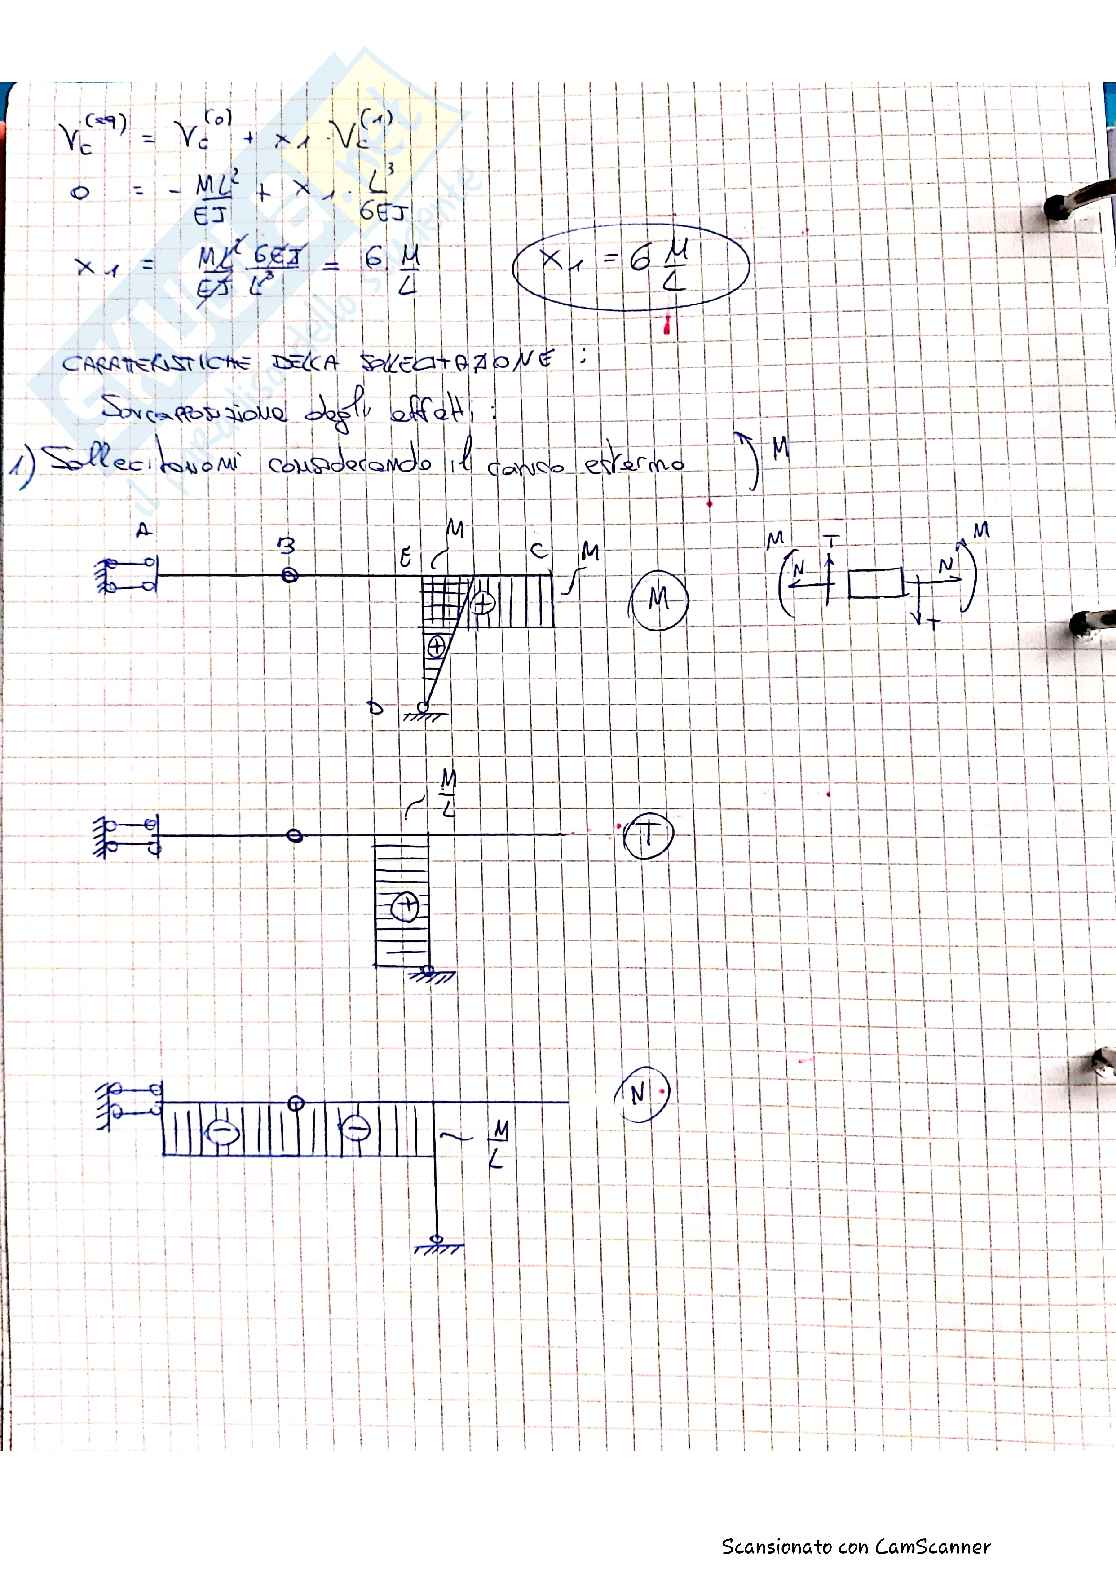 Vc^(eq) = Vc^(0) + x1 · Vc^(1)
0 = - ML²/EJ + x1 · L³/6EJ
x1 = ML²/EJ 6EJ/L³ = 6 M/L x1 = 6 M/L
CARATTERISTICHE DELLA SOLLECITAZIONE :
Sovrapposizione degli effetti :
1) Sollecitazioni considerando il carico esterno M
A B E M C M M M N T N M T
+ +
D
M/L
T
+
N
- - M/L
Scansionato con CamScanner